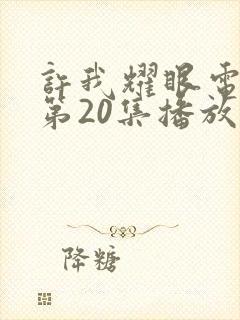 許我耀眼電
第20集播放
降糖